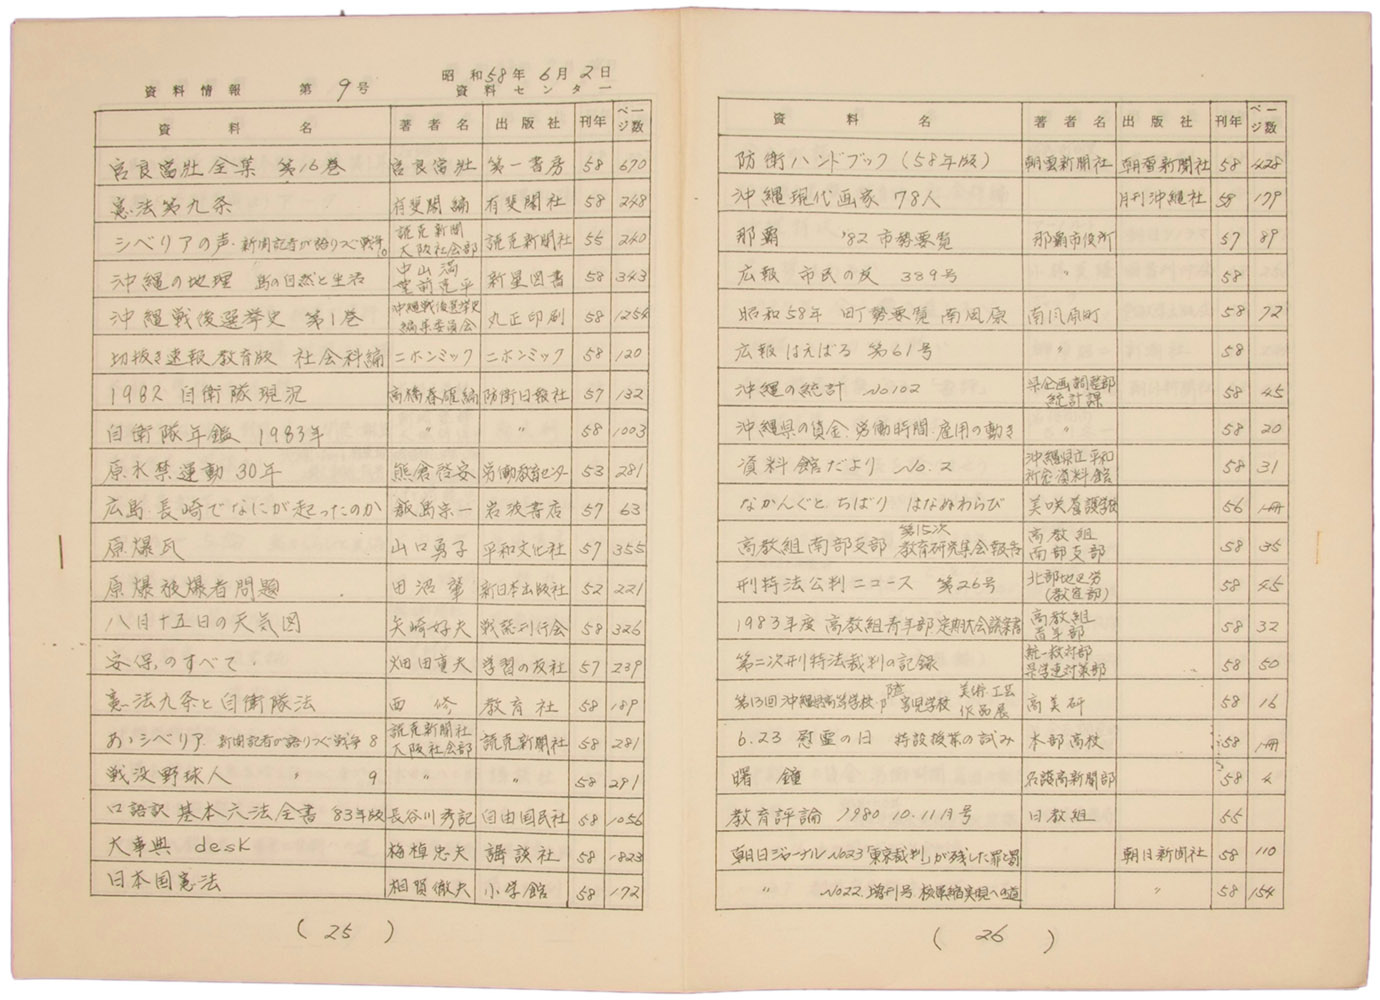 昭和58年6月2日
資料情報 第9号 資料センター
資料名 著者名 出版社 刊年 ページ数
宮良當壯全集 第16巻 宮良當壯 第一書房 58 670
憲法第九条 有斐閣編 有斐閣社 58 248
シベリアの声・新聞記者が語りつぐ戦争。 読売新聞大阪社会部 読売新聞社 55 240
沖縄の地理 島の自然と生活 中山満 新星図書 58 343
沖縄戦後選挙史 第1巻 沖縄戦後選挙史編集委員会 丸正印刷 58 1254
切抜き速報 教育版 社会科編 ニホンミック ニホンミック 58 120
1982 自衛隊現況 高橋春雄編 防衛日報社 57 132
自衛隊年鑑 1983年 〃 〃 58 1003
原水禁運動30年 熊倉啓安 労働教育センター 53 281
広島・長崎でなにが起ったのか 飯島宗一 岩波書店 57 63
原爆瓦 山口勇子 平和文化社 57 355
原爆被爆者問題 田沼肇 新日本出版社 52 221
八月十五日の天気図 矢崎好夫 戦誌刊行会 58 326
安保のすべて 畑田重夫 学習の友社 57 239
憲法九条と自衛隊法 西修 教育社 58 189
あゝシベリア 新聞記者が語りつぐ戦争 8 読売新聞社大阪社会部 読売新聞社 58 281
戦没野球人 〃 9 〃 〃 58 291
口語訳 基本六法全書 83年版 長谷川秀記 自由国民社 58 1056
大事典 desk 梅棹忠夫 講談社 58 1823
日本国憲法 相賀徹夫 小学館 58 172
(25)
資料名 著者名 出版社 刊年 ページ数
防衛ハンドブック(58年版) 朝雲新聞社 朝雲新聞社 58 428
沖縄現代画家78人 月刊沖縄社 58 179
那覇 '82市勢要覧 那覇市役所 57 89
広報 市民の友 339号 〃 58
昭和58年 町勢要覧 南風原 南風原町 58 72
広報 はえばる 第61号 〃 58
沖縄の統計 No102 県企画調整部統計課 58 45
沖縄県の賃金・労働時間・雇用の動き 〃 58 20
資料館だより No.2 沖縄県立平和祈念資料館 58 31
なかんぐと ちばり はなぬわらび 美咲養護学校 56 1冊
高教組南部支部 第15次教育研究集会報告 高教組南部支部 58 35
刑特法公判ニュース 第26号 北部地区労(教宣部) 58 45
1983年度 高教組青年部定期大会議案書 高教組青年部 58 32
第二次刑特法裁判の記録 統一被対部県学連対策部 58 50
第13回沖縄県高等学校・障害児学校 美術・工芸作品展 高美研 58 16
6.23 慰霊の日 特設授業の試み 本部高校 58 1冊
曙鐘 名護高新聞部 58 4
教育評論 1980 10.11月号 日教組 55
朝日ジャーナル No23「東京裁判」が残した罪と罰 朝日新聞社 58 110
〃 No22.増刊号.核軍縮実現への道 〃 58 154
(26)